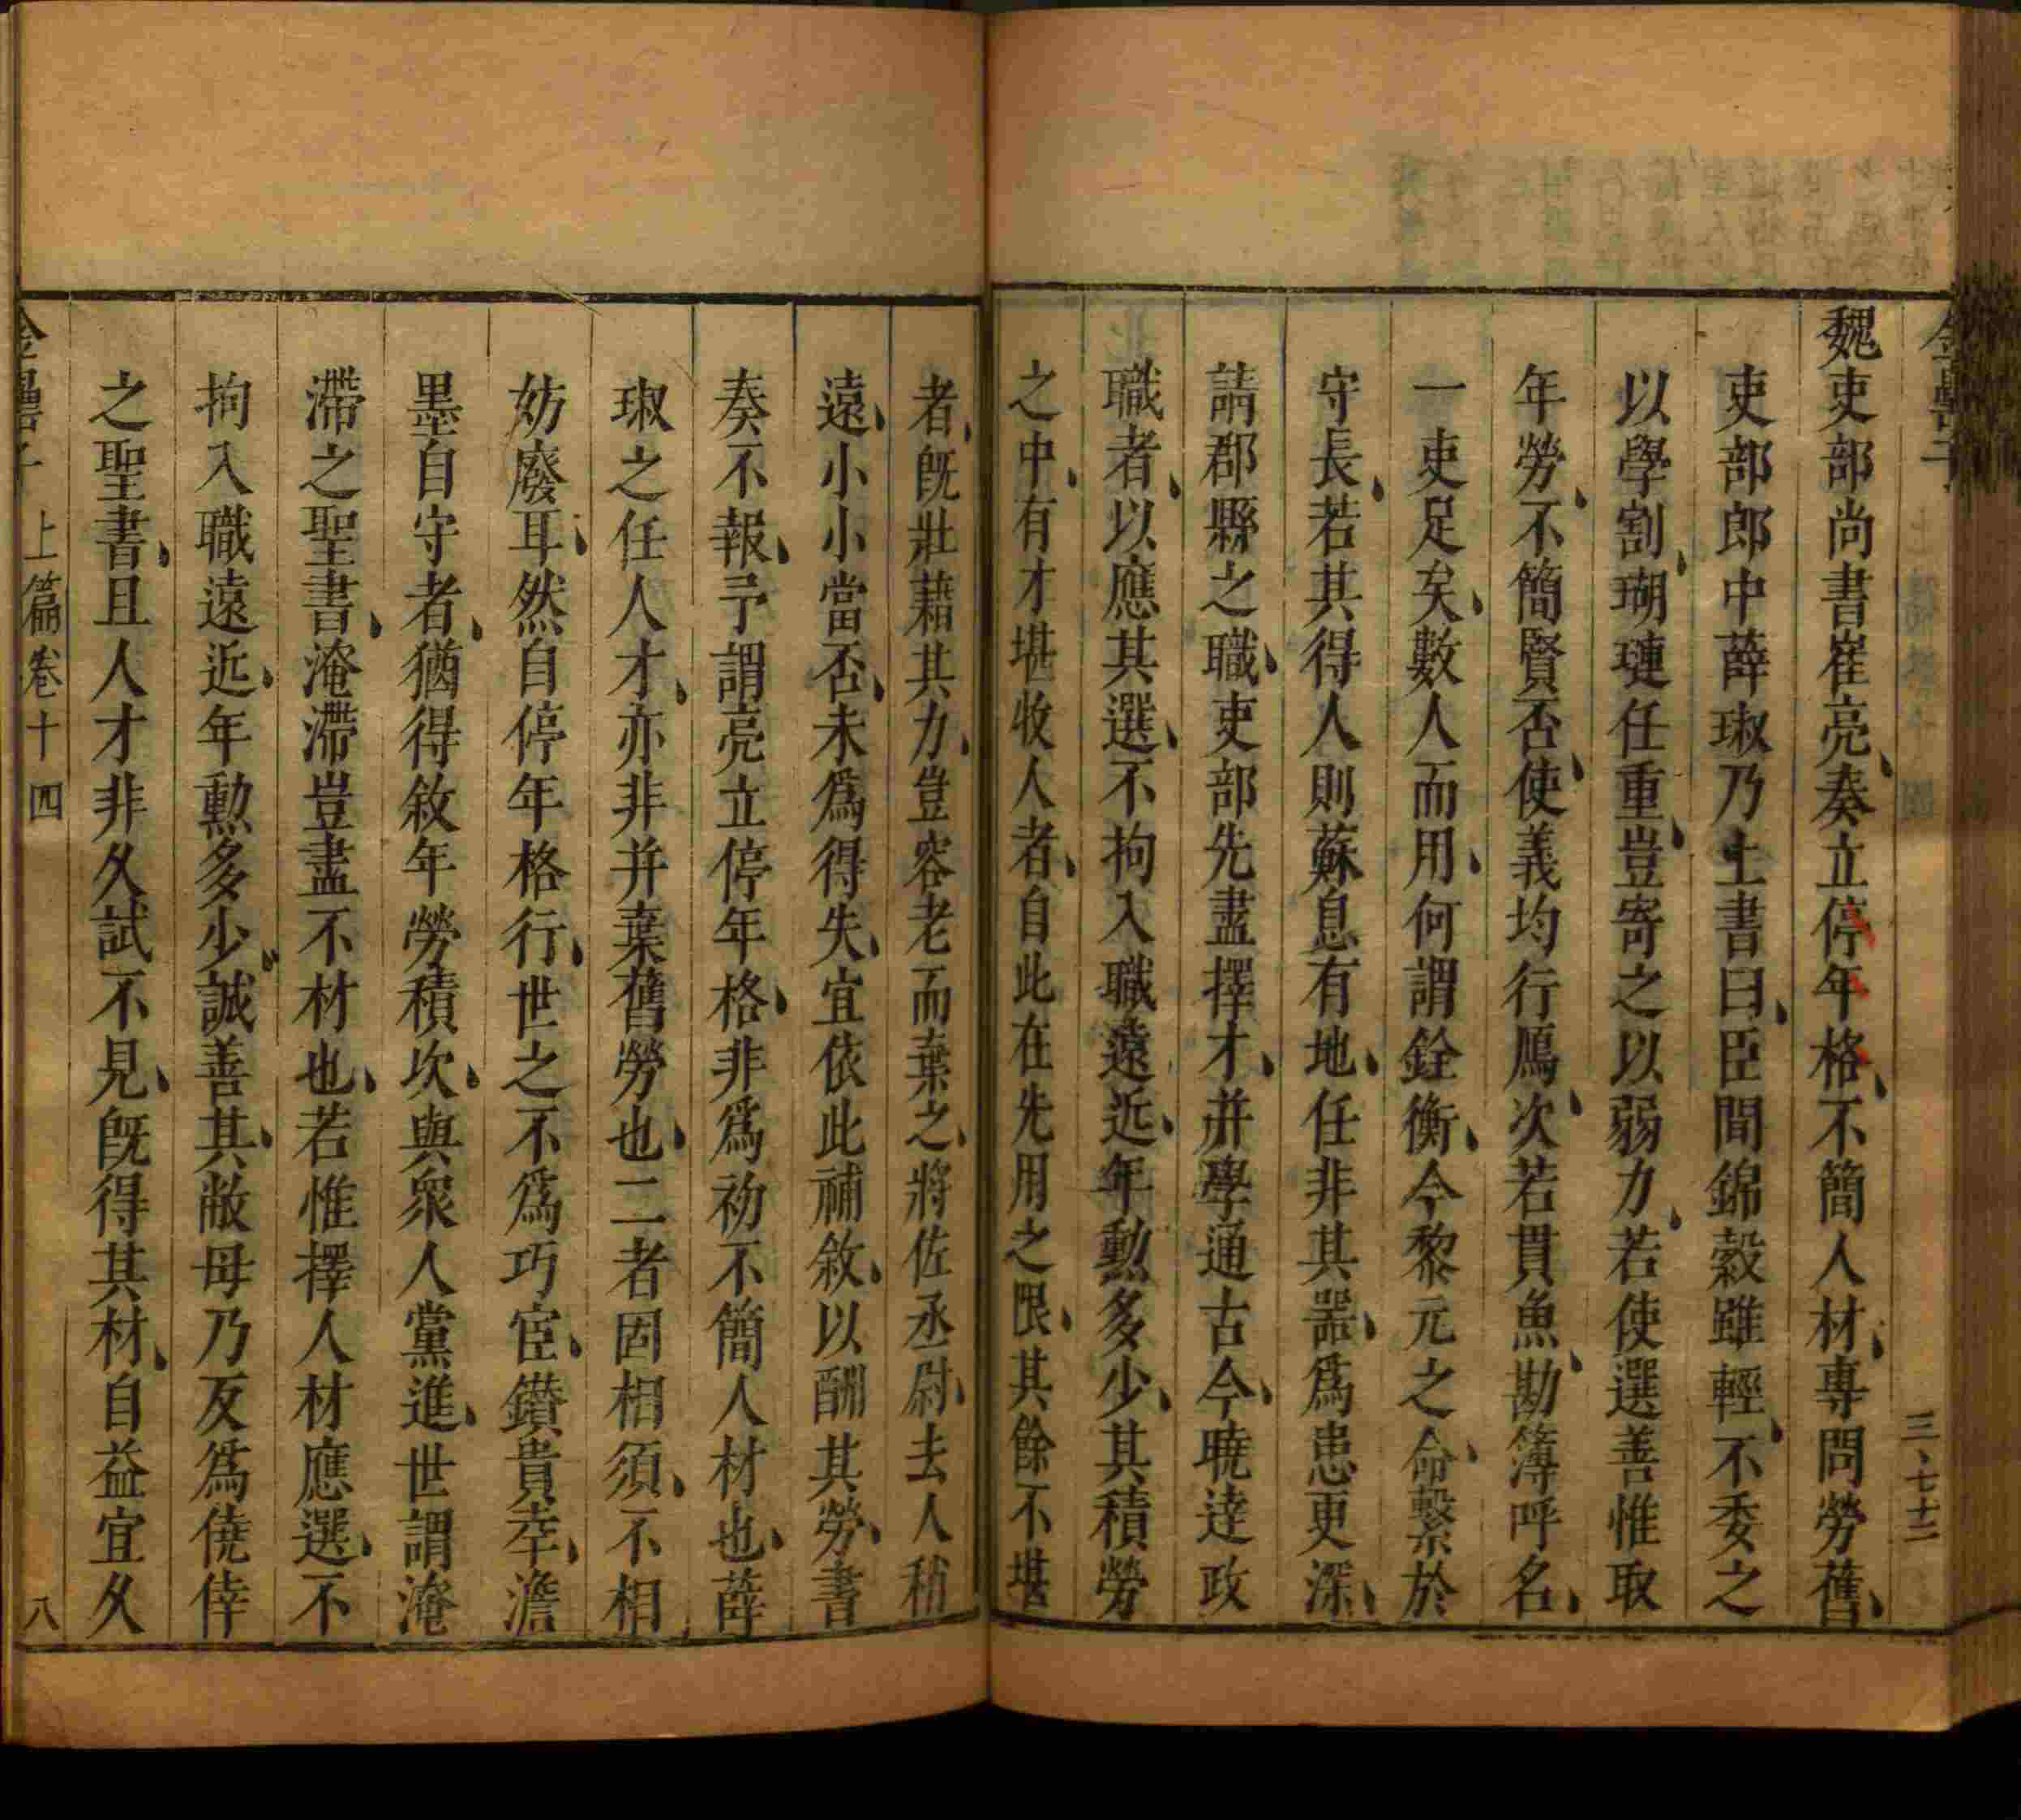 三、七十二
魏吏部尚書崔亮、奏立停年格、不簡人材、專問勞舊、
吏部郎中薛琡乃上書曰、臣聞錦縠雖輕、不委之
以學割、瑚璉任重、豈寄之以弱力、若使選善惟取
年勞、不簡賢否、使義均行鴈、次若貫魚、勘簿呼名、
一吏足矣、數人而用、何謂銓衡、今黎元之命、繫於
守長、若其得人則蘇息有地、任非其噐、爲患更深、
請郡縣之職、吏部先盡擇才、并學通古今、曉達政
職者、以應其選、不拘入職遠近、年勳多少、其積勞
之中、有才堪收人者、自此在先用之限、其餘不堪
者、旣壯藉其力、豈容老而棄之、將佐丞尉、去人稍
遠、小小當否、未爲得失、宜依此補敘、以酬其勞、書
奏不報、予謂亮立停年格、非爲初不簡人材也、薛
琡之任人才、亦非并棄舊勞也、二者固相須、不相
妨廢耳、然自停年格行、世之不爲巧宦、鑚貴幸、澹
墨自守者、猶得敘年勞積次、與衆人黨進、世謂淹
滯之聖書、淹滯豈盡不材也、若惟擇人材應選、不
拘入職遠近、年勳多少、誠善其、敝毋乃反爲僥倖
之聖書、且人才非久試不見、旣得其材、自益宜久
金罍子 上篇卷十四 八